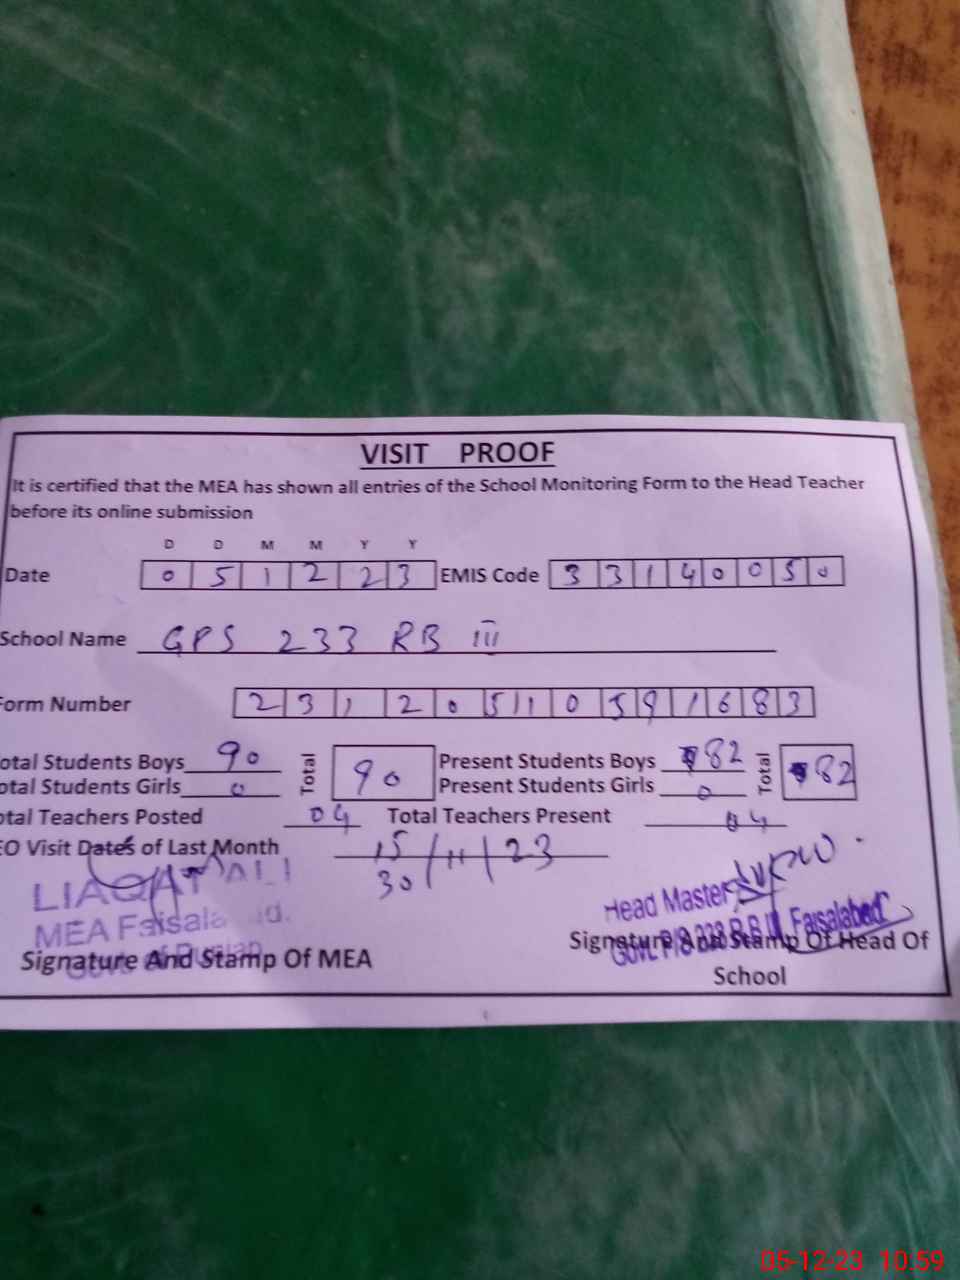 VISIT PROOF
It is certified that the MEA has shown all entries of the School Monitoring Form to the Head Teacher
before its online submission
D D M M Y Y
Date 0 5 1 2 2 3 EMIS Code 3 3 1 4 0 0 5 0
School Name GPS 233 RB III
Form Number 2 3 1 2 0 5 1 1 0 5 9 1 6 8 3
otal Students Boys 90 Total 90 Present Students Boys 82 Total 82
otal Students Girls 0 Present Students Girls 0
otal Teachers Posted 04 Total Teachers Present 04
EO Visit Dates of Last Month 15/11/23
30
LIAQAT ALI
MEA Faisalabad.
Signature And Stamp Of MEA
Head Master
Govt. P/S 233 R.B III, Faisalabad
Signature And Stamp Of Head Of
School
05-12-23 10.59